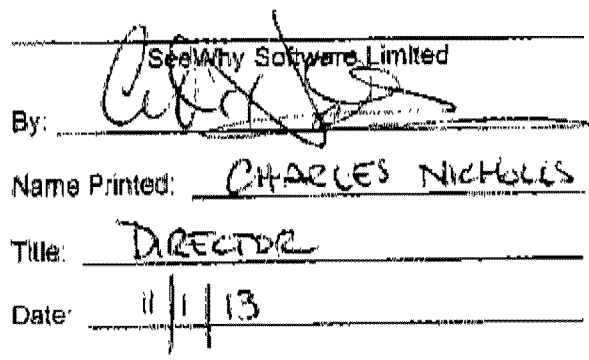 SeeWhy Software Limited
By:
Name Printed: CHARLES NICHOLLS
Title: DIRECTOR
Date: 11/1/13